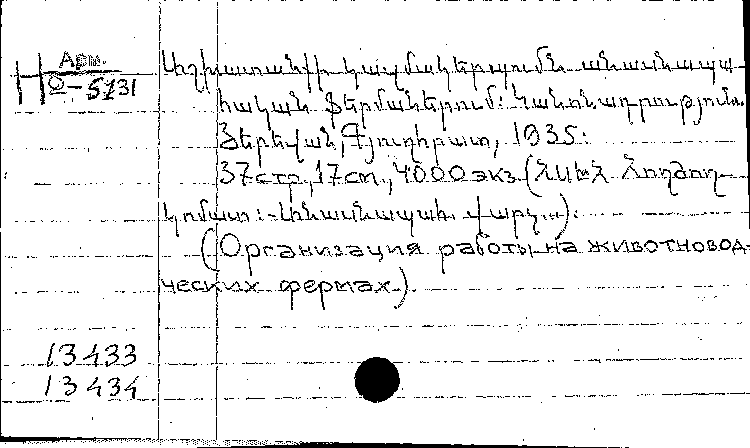 Арм.
Աշխատանքի կազմակերպումն անասնապա-
հական ֆերմաներում: Կանոնադրություն.
Յերեվան, Գյուղհրատ, 1935:
37 стр., 17 cm., 4000 экз. (ՀՍԽՀ Հողժող-
կոմատ:-Անասնապահ. վարչ...).
(Организация работы на животновод-
ческих фермах).
13433
13434